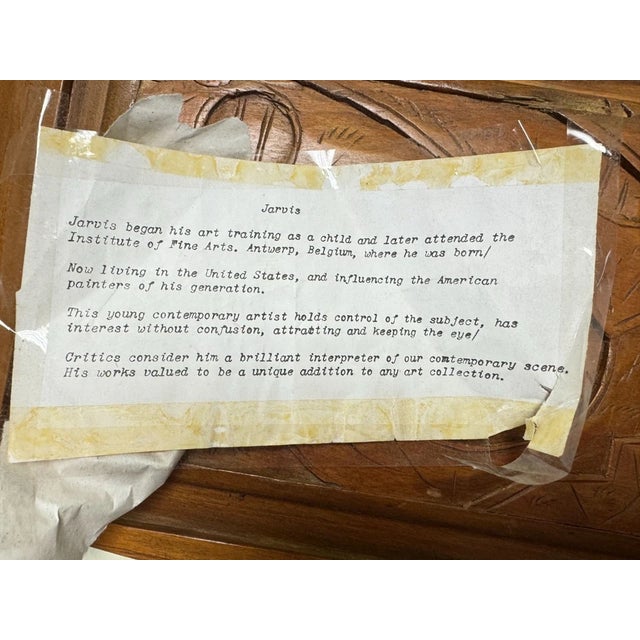 Jarvis
Jarvis began his art training as a child and later attended the
Institute of Fine Arts. Antwerp, Belgium, where he was born/
Now living in the United States, and influencing the American
painters of his generation.
This young contemporary artist holds control of the subject, has
interest without confusion, attracting and keeping the eye/
Critics consider him a brilliant interpreter of our contemporary scene.
His works valued to be a unique addition to any art collection.